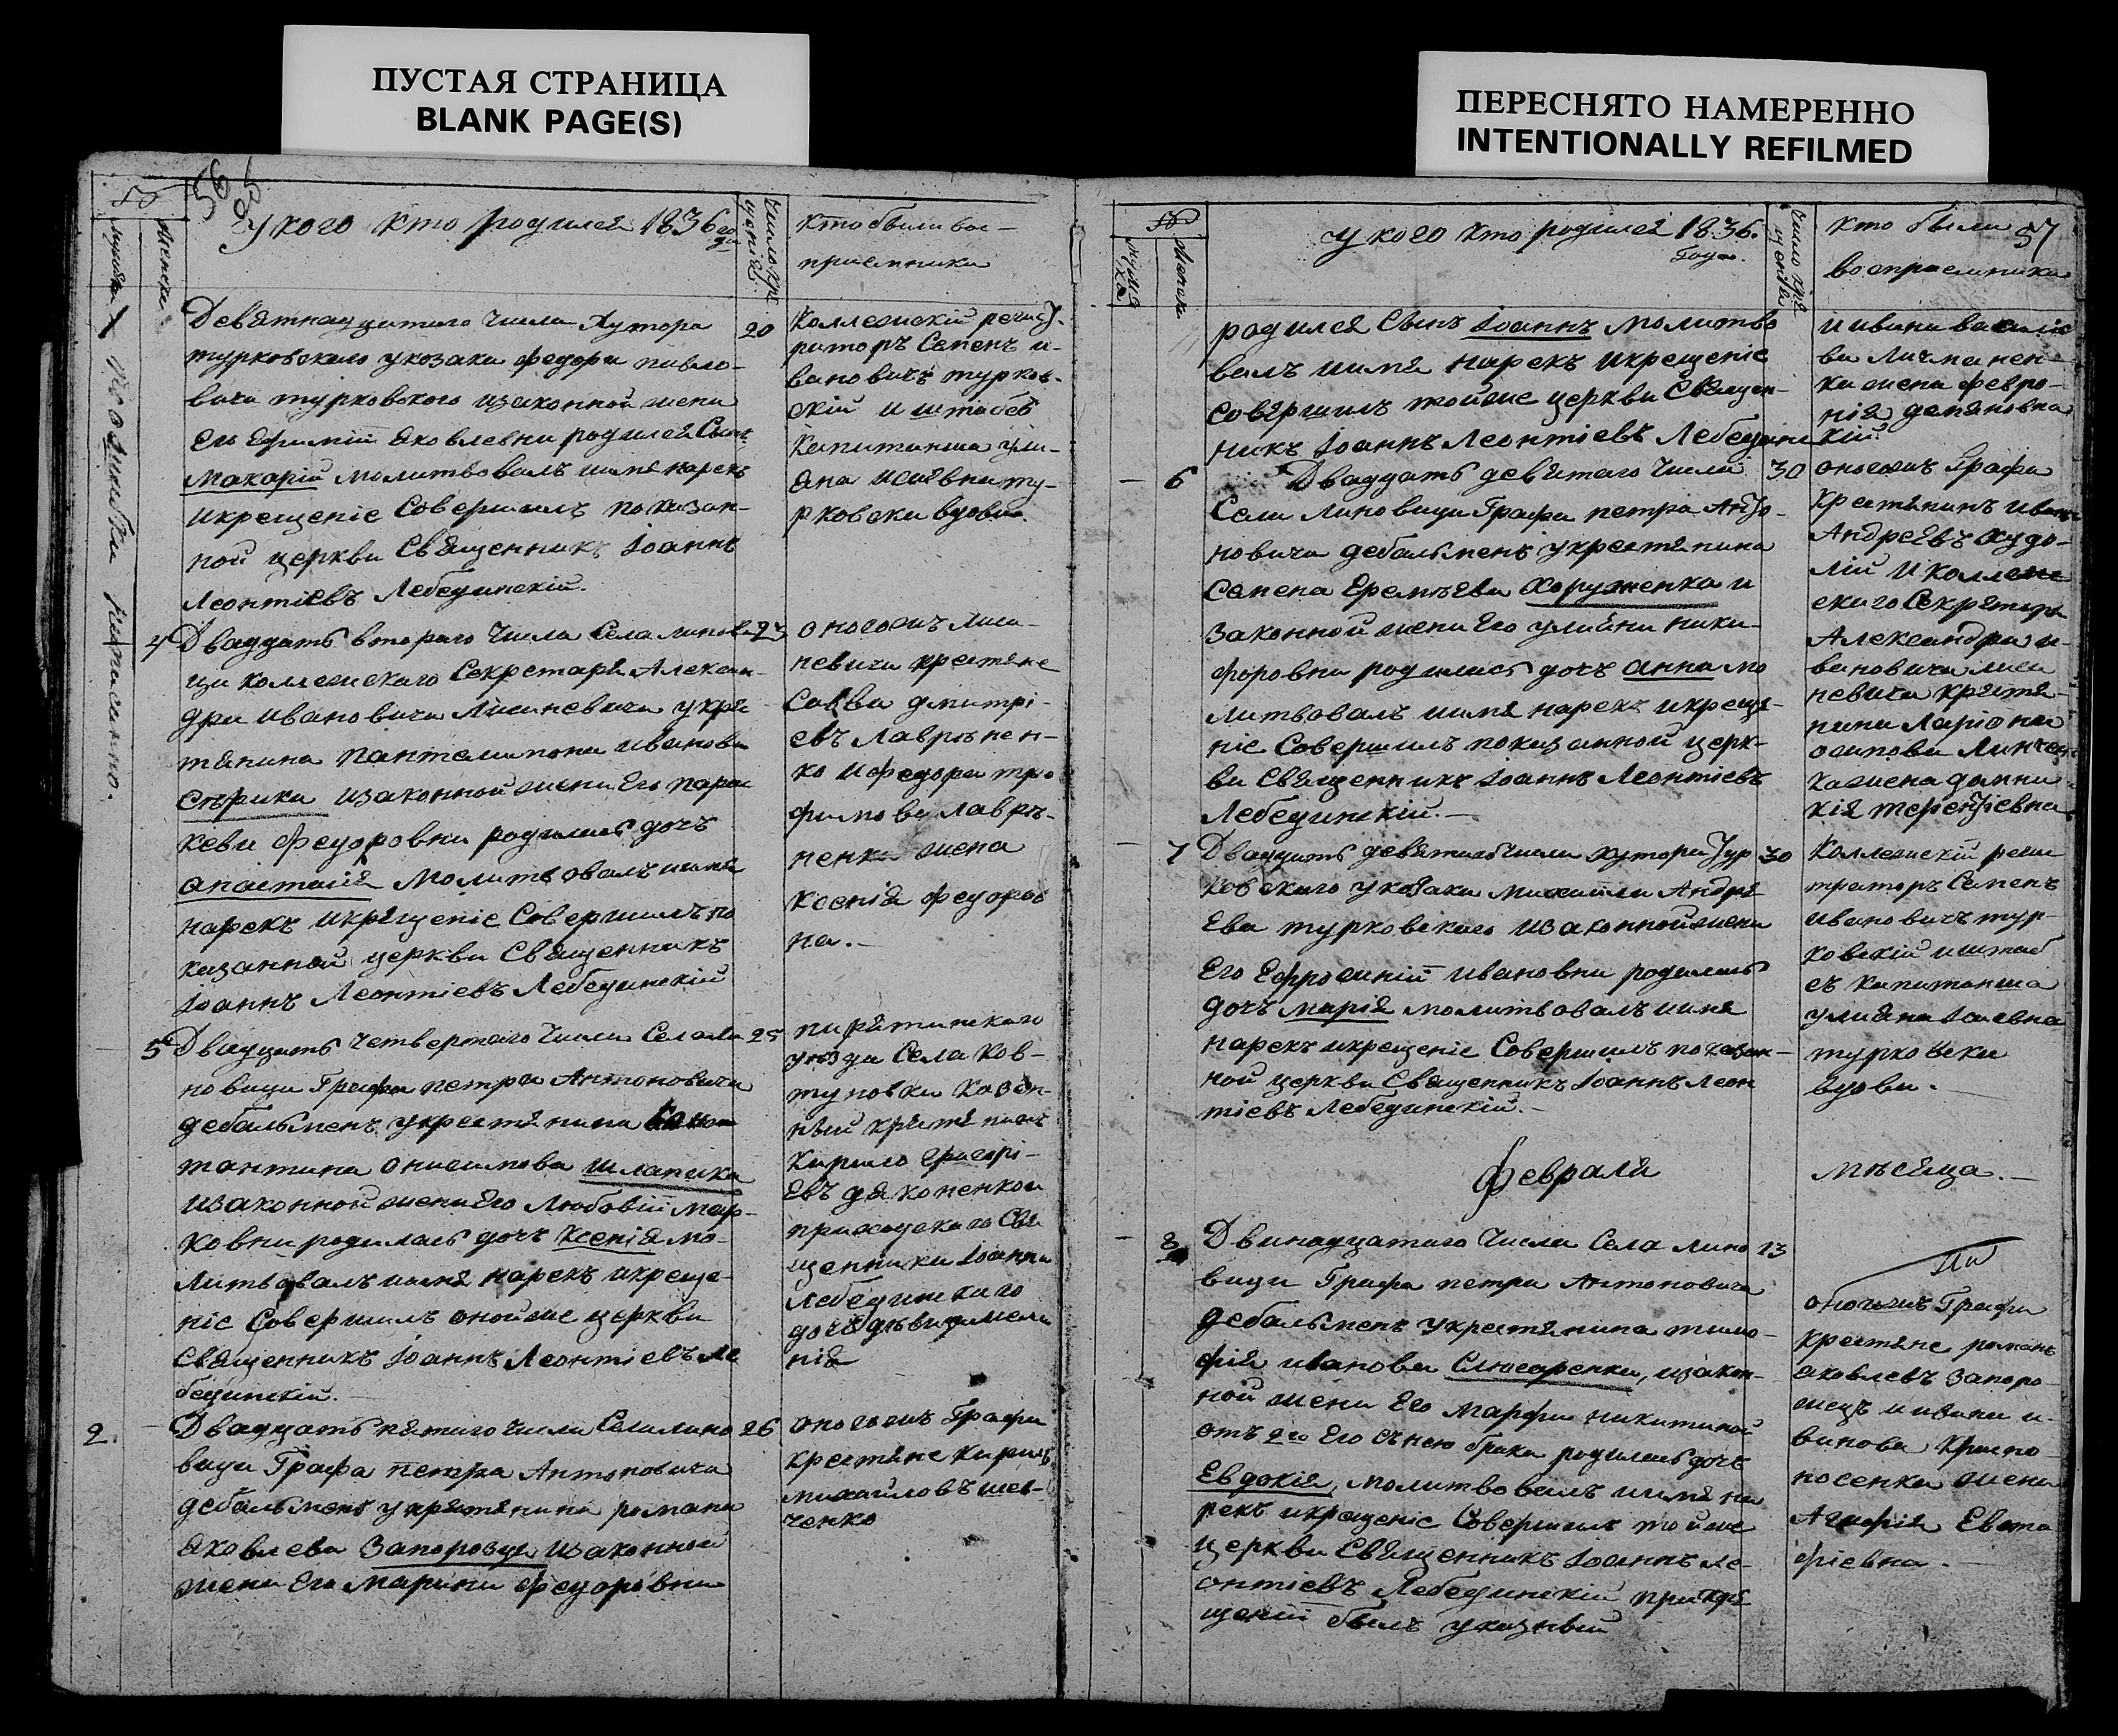 ПУСТАЯ СТРАНИЦА
BLANK PAGE(S)
ПЕРЕСНЯТО НАМЕРЕННО
INTENTIONALLY REFILMED
56
У кого кто родился 1836 го
да
кто были вос-
приемники
Девятнадцатого числа Хутора
турковского у козака федора павло-
вича турковского изаконной жены
Его Ефимий яковлевны родился Сынъ
Макарій молитвовалъ имя нарекъ
икрещеніе Совершилъ показан-
ной церкви Священникъ Іоаннъ
Леонтіевъ Лебединскій.
20
Коллежскій регист-
раторъ Семенъ и-
вановичъ турков-
скій и штабсъ
Капитанша ули-
яна
рковска вдова.
4
Двадцать втораго числа Села линови
ци коллежскаго Секретаря Алексан-
дра ивановича Лисаневича укре
тянина пантелимона иванова
изаконной жены Его парас
кевы федоровны родилась дочъ
анастасія Молитвовалъ имя
нарекъ икрещеніе Совершилъ по
казанной церкви Священникъ
Іоаннъ Леонтіевъ Лебединскій
23
оногожъ Лиса-
невича крестяне
Савва дмитрі-
евъ Лаврѣнен-
ко ифедора тро
фимова лаврѣ-
ненка жена
ксенія федоров
на.-
5
Двадцать четвертаго числа Села ли
новици Графа петра Антоновича
дебальменъ укрестянина Конс
тантина онисимова шлапака
изаконной жены Его Любовій мар-
ковны родилась дочъ Ксенія мо-
литвовалъ имя нарекъ икреще-
ніе Совершилъ онойже церкви
Священникъ Іоаннъ Леонтіевъ Ле
бединскій.-
25
пирятинского
уѣзда Села Ков-
туновки казен-
ный крестянинъ
Кирило Григорі-
евъ дяконенкои
приходскаго Свя
щенника Іоанна
Лебединскаго
дочъ дѣвица мела
нія
2
Двадцать пятаго числа Села лино
вици Графа петра Антоновича
дебальменъ укрестянина романа
яковлева Запорозца изаконной
жены Его Марины федоровны
26
оногожъ Графа
крестяне Кирилъ
михайловъ шев-
ченко
57
у кого кто родился 1836.
Года.
кто были
воспраемника
родился Сынъ Іоаннъ Молитво
валъ имя нарекъ икрещеніе
Совершилъ тойже церкви Священ-
никъ Іоаннъ Леонтіевъ Лебединскій
иивана василіе
ва
ка жена февро-
нія демяновна
6
Двадцать девятаго числа
Села линовици Графа петра Анто-
новича дебальменъ укрестянина
Семена Еремѣева Хоруженка и
законной жены Его улияны ники-
форовны родилась дочъ анна мо
литвовалъ имя нарекъ икреще-
ніе Совершилъ показанной церк-
ви Священникъ Іоаннъ Леонтіевъ
Лебединскій.-
30
оногожъ Графа
Крестянинъ иванъ
Андреевъ худо-
лій и коллеж
скаго Секретаря
Александра и-
вановича лиса
невича крестя-
нина Ларіона
осипова
жена домни
кія терентіевна
7
Двадцать девятагочисла хутора Тур
ковскаго укозака михаила Андре
ева турковскаго изаконнойжены
Его Ефросиній ивановны родилась
дочъ марія молитвовалъ имя
нарекъ икрещеніе Совершилъ показан-
ной церкви Священникъ Іоаннъ Леон
тіевъ Лебединскій.-
30
Коллежскій регис
траторъ Семенъ
ивановичъ тур-
ковскій иштаб
съ капитанша
улияна
турковска
вдова.
февраля
мѣсяца.-
8
Двинадцатаго числа Села лино
вици Графа петра Антоновича
дебальменъ укрестянина тимо-
фія иванова Слюсаренка, изакон-
ной жены Его Марфы никитиной
отъ 2го Его снею брака родилась дочъ
Евдокія, молитвовалъ имя на
рекъ икрещеніе Совершилъ тойже
церкви Священникъ Іоаннъ Ле-
онтіевъ Лебединскій прикре
щеніи былъ указный
13
оногожъ Графа
крестяне романъ
яковлевъ запоро-
жецъ и ивана и-
ванова
носенка жена
Агафія Евста
фіевна.